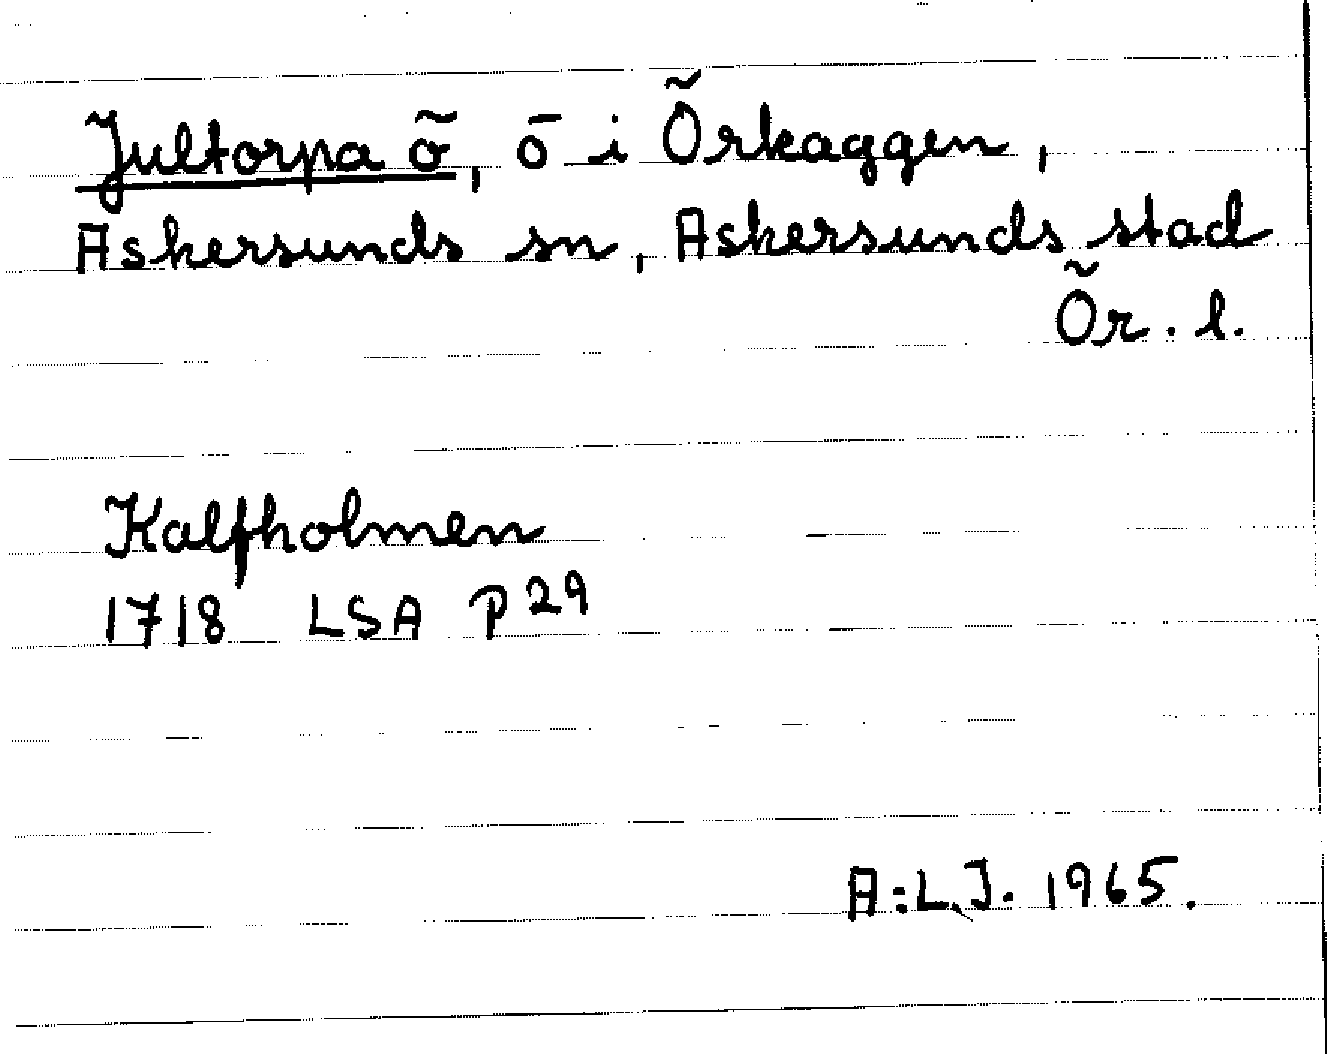 Jultorpa ö, ö i Örkaggen,
Askersunds sn, Askersunds stad
Ör. l.
Kalfholmen
1718 LSA P29
A:L.J. 1965.